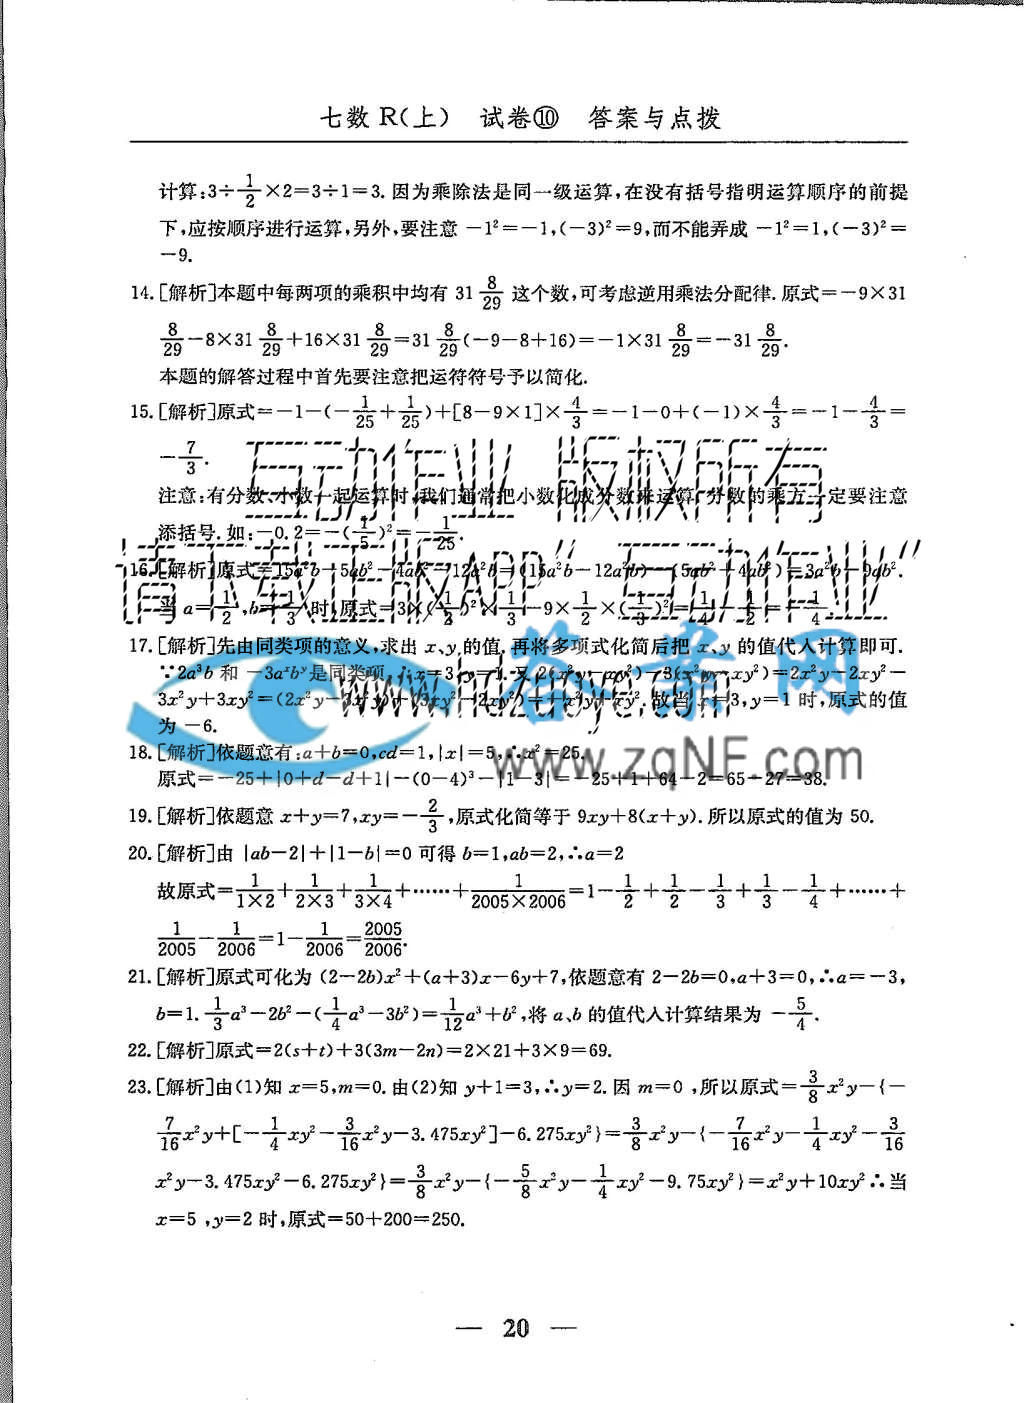 七数 R(上) 试卷⑩ 答案与点拨
计算:3÷1/2×2=3÷1=3.因为乘除法是同一级运算,在没有括号指明运算顺序的前提
下,应按顺序进行运算,另外,要注意 -1²=-1,(-3)²=9,而不能弄成 -1²=1,(-3)²=
-9.
14.[解析]本题中每两项的乘积中均有 31 8/29 这个数,可考虑逆用乘法分配律.原式=-9×31
8/29-8×31 8/29+16×31 8/29=31 8/29(-9-8+16)=-1×31 8/29=-31 8/29.
本题的解答过程中首先要注意把运符符号予以简化.
15.[解析]原式=-1-(-1/25+1/25)+[8-9×1]×4/3=-1-0+(-1)×4/3=-1-4/3=
-7/3.
互动作业 版权所有
注意:有分数、小数一起运算时,我们通常把小数化成分数来运算,分数的乘方一定要注意
添括号.如:-0.2=-(1/5)²=-1/25.
请下载正版APP“互动作业”
16.[解析]原式=15a²b-5ab²-4ab²-12a²b=(15a²b-12a²b)-(5ab²+4ab²)=3a²b-9ab².
当 a=1/2,b=
17.[解析]先由同类项的意义,求出 x、y 的值,再将多项式化简后把 x、y 的值代入计算即可.
∵2a³b 和 -3aˣbʸ是同类项
3x²y+3xy²=
故当 x=3,y=1 时,原式的值
为 -6.
答案网
www.hdzuoye.com
18.[解析]依题意有:a+b=0,cd=1,|x|=5,∴x²=25.
原式=-25+|0+d-d+1|-(0-4)³-|1-3|=-25+1+64-2=65-27=38.
www.zqNF.com
19.[解析]依题意 x+y=7,xy=-2/3,原式化简等于 9xy+8(x+y).所以原式的值为 50.
20.[解析]由 |ab-2|+|1-b|=0 可得 b=1,ab=2,∴a=2
故原式=1/1×2+1/2×3+1/3×4+……+1/2005×2006=1-1/2+1/2-1/3+1/3-1/4+……+
1/2005-1/2006=1-1/2006=2005/2006.
21.[解析]原式可化为 (2-2b)x²+(a+3)x-6y+7,依题意有 2-2b=0,a+3=0,∴a=-3,
b=1.1/3a³-2b²-(1/4a³-3b²)=1/12a³+b²,将 a、b 的值代入计算结果为 -5/4.
22.[解析]原式=2(s+t)+3(3m-2n)=2×21+3×9=69.
23.[解析]由(1)知 x=5,m=0.由(2)知 y+1=3,∴y=2.因 m=0 ,所以原式=3/8x²y-{-
7/16x²y+[-1/4xy²-3/16x²y-3.475xy²]-6.275xy²}=3/8x²y-{-7/16x²y-1/4xy²-3/16
x²y-3.475xy²-6.275xy²}=3/8x²y-{-5/8x²y-1/4xy²-9.75xy²}=x²y+10xy²∴当
x=5 ,y=2 时,原式=50+200=250.
— 20 —